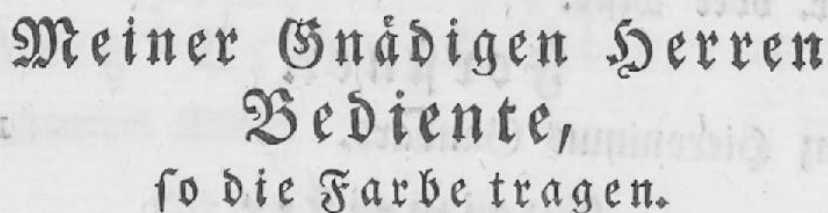 Meiner Gnädigen Herren
Bediente,
so die Farbe tragen.